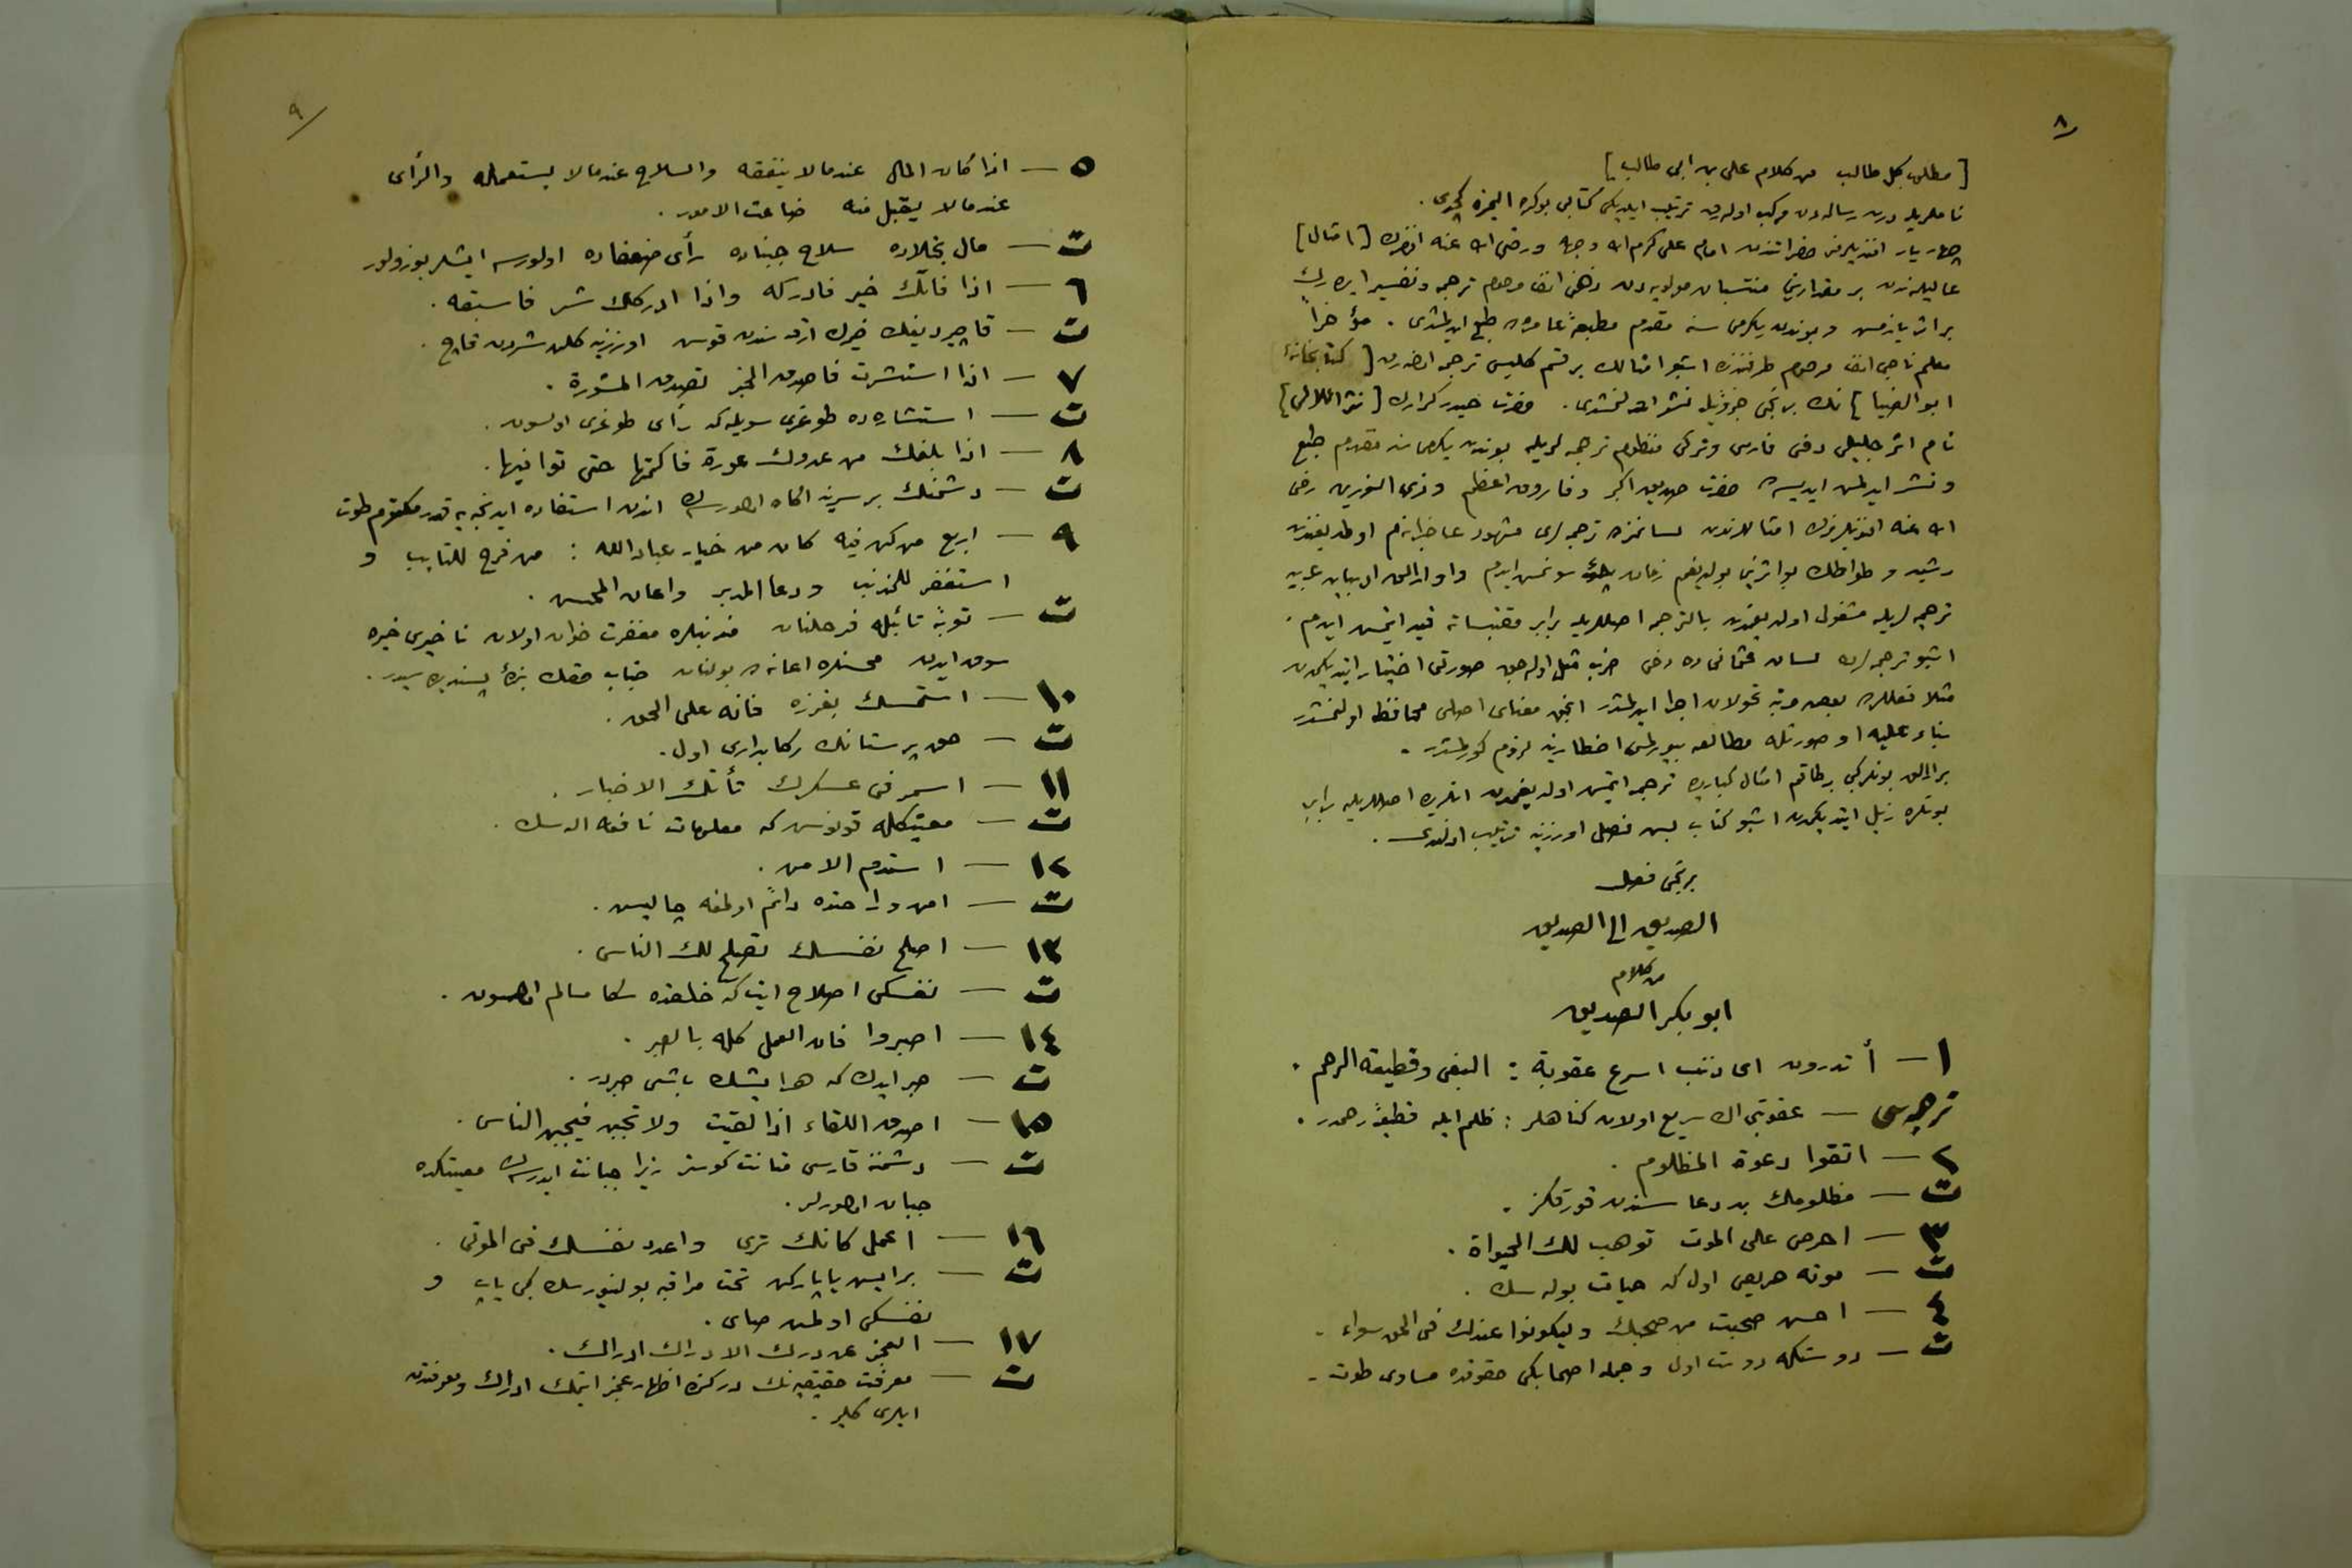 ٨
[مطلوب كل طالب من كلام على بن ابى طالب]
ناملريله درت رساله دن مركب اوله رق ترتيب ايلديكى كتابى بو كره اليمزه كچدى.
چهار يار افندیلرمز حضراتندن امام على كرم الله وجهه ورضى الله عنه افندمزك [امثال]
عاليه لرندن بر مقدارينى منتسبان مولويه دن ذهنى افندى مرحوم ترجمه وتفسير ايده رك
بر اثر يازمش وبوندن يكرمى سنه مقدم مطبعۀ عامره ده طبع ايدلمشدى. مؤخراً
معلم ناجى افندى مرحوم طرفندن اشبو امثالك بر قسم كليسى ترجمه ايديله رك [كتابخانۀ
ابو الضيا] نك برنجى جزؤيله نشر اولنمشدى. حضرت حيدر كرارك [نثر اللآلى]
نام اثر جليلى دخى فارسى وتركى منظوم ترجمه لريله بوندن يكرمى سنه مقدم طبع
ونشر ايدلمش ايسه ده حضرت صديق اكبر وفاروق اعظم وذى النورين رضى
الله عنه افندیلرمزك امثاللرندن لسانمزده ترجمه لرى مشهود عاجزانه م اولمديغندن
رشيد وطواطك بو اثرينى بولديغم زمان سونمش ايدم واوارالق ادبيات عربيه
ترجمه لريله مشغول اولديغمدن بالترجمه اصللريله برابر مقتبساته قيد ايتمش ايدم.
اشبو ترجمه لرده لسان عثمانى ده دخى ضرب مثل اوله جق صورتى اختيار ايتديكمدن
مثلا فعللرده بعض مرتبه تحولات اجرا ايدلمشدر انجق معناى اصلى محافظه اولنمشدر
بناء عليه او صورتله مطالعه بيورلمسى اخطارينه لزوم كورلمشدر.
بر آرالق بونلر كبى بر طاقم امثال كبارى ده ترجمه ايتمش اولديغمدن انلرى ده اصللريله برابر
بونلره ذيل ايتديكمدن اشبو كتاب بش فصل اوزرينه ترتيب اولندى.
برنجى فصل
الصديق الى الصديق
من كلام
ابو بكر الصديق
١ — أتدرون اى ذنب اسرع عقوبة : البغى وقطيعة الرحم.
ترجمه سى — عقوبتى اڭ سريع اولان كناهلر : ظلم ايله قطيعۀ رحمدر.
٢ — اتقوا دعوة المظلوم.
ت — مظلومك بد دعا سندن قورقكز.
٣ — احرص على الموت توهب لك الحيواة.
ت — موته حريص اول كه حيات بوله سك.
٤ — احسن صحبت من صحبك وليكونوا عندك فى الحق سواء.
ت — دوستكله دوست اول وجمله اصحابكى حقوقده مساوى طوت.
٩
٥ — اذا كان المال عند مالا ينفقه والسلاح عند مالا يستعمله والرأى
عند مالا يقبل منه ضاعت الامور.
ت — مال بخلاده سلاح جبناده رأى ضعفاده اولورسه ايشلر بوزولور
٦ — اذا فاتك خير فادركه واذا ادركك شر فاسبقه.
ت — قاچيرديغك خيرك ارقه سندن قوش اوزرينه كلن شردن قاچ.
٧ — اذا استشرت فاصدق الخبر تصدق المشورة.
ت — استشاره ده طوغرى سويله كه رأى طوغرى اولسون.
٨ — اذا بلغك من عدوك عورة فاكتمها حتى توافيها.
ت — دشمنك بر سرينه اكاه اولورسه ك اندن استفاده ايدنجه يه قدر مكتوم طوت
٩ — اربع من كن فيه كان من خيار عباد الله : من فرح للتايب و
استغفر للمذنب ودعا المدبر واعان المحسن.
ت — توبۀ تائبله فرحلنان مذنبلره مغفرت خوان اولان ناخيرى خيره
سوق ايدن محسنلره اعانه ده بولنان جناب حقك بندۀ پسنديده سيدر.
١٠ — استمسك بغرزه فانه على الحق.
ت — حق پرستانك ركابدارى اول.
١١ — اسمر فى عسكرك تأتك الاخبار.
ت — معيتكله قونوش كه معلومات نافعه اله سك.
١٢ — استدم الامن.
ت — امن و راحتده دائم اولمغه چاليش.
١٣ — اصلح نفسك تصلح لك الناس.
ت — نفسكى اصلاح ايت كه خلقده سكا سالم اولسون.
١٤ — اصبروا فان العمل كله بالصبر.
ت — صبر ايدك كه هر ايشك باشى صبردر.
١٥ — اصدق اللقاء اذا لقيت ولا تجبن فيجبن الناس.
ت — دشمنه قارشى متانت كوستر زيرا جبانت ايدرسه ك معيتكده
جبان اولورلر.
١٦ — اعمل كانك ترى واعدد نفسك فى الموتى.
ت — بر ايش ياپاركن تحت مراقبه بولنيورسك كبى ياپ و
نفسكى اولمش صاى.
١٧ — العجز عن درك الادراك ادراك.
ت — معرفت حقيقيه نك دركنده اظهار عجز ايتمك ادراك ومعرفتدن
ايلرى كلير.